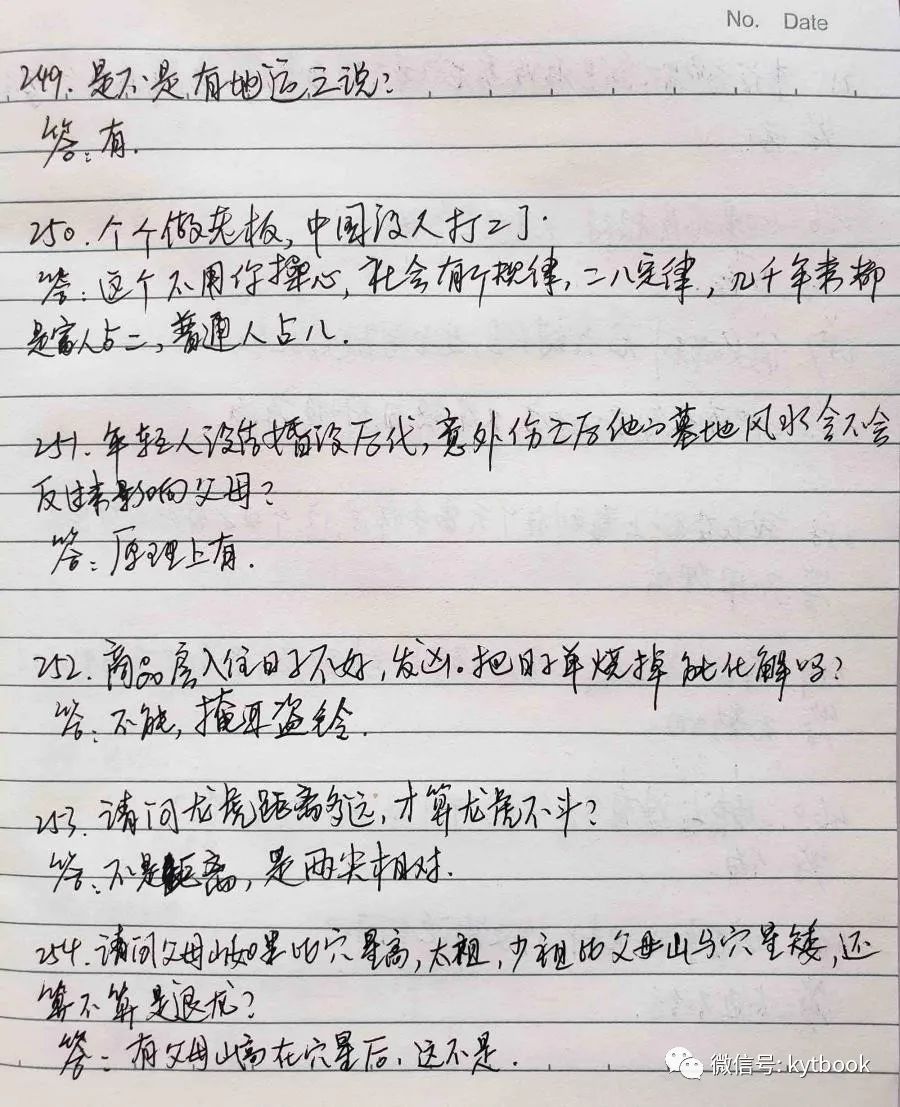 No. Date
249. 是不是有地运之说?
答:有.
250. 个个做老板,中国没人打工了.
答:这个不用你操心,社会有个规律,二八定律,几千年来都
是富人占二,普通人占八.
251. 年轻人没结婚没后代,意外伤亡后他的墓地风水会不会
反过来影响父母?
答:原理上有.
252. 商品房入住日子不好,发凶。把日子单烧掉能化解吗?
答:不能,掩耳盗铃.
253. 请问龙虎距离多远,才算龙虎不斗?
答:不是距离,是两尖相对.
254. 请问父母山如果比穴星高,太祖,少祖比父母山与穴星矮,还
算不算是退龙?
答:有父母山高在穴星后,这不是.
微信号: kytbook